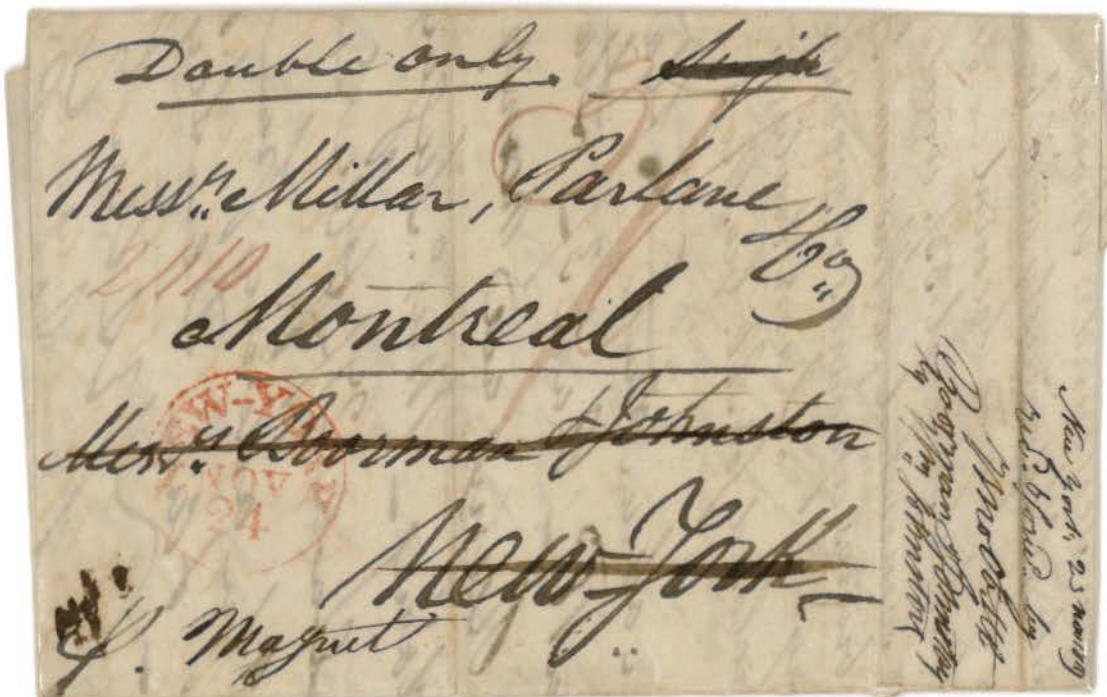 Double only. Single
Messrs. Millar, Parlane
& Co
2/1/10
Montreal
NEW-YORK
AUG
24
Messrs. Boorman Johnston
New-York
p. Magnet
New York, 25
by
Boorman Johnston